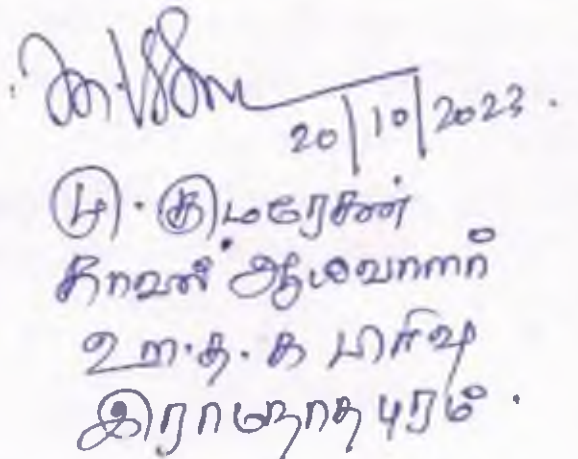 20/10/2023.
மு. குமரேசன்
காவல் ஆய்வாளர்
இராமநாதபுரம்.